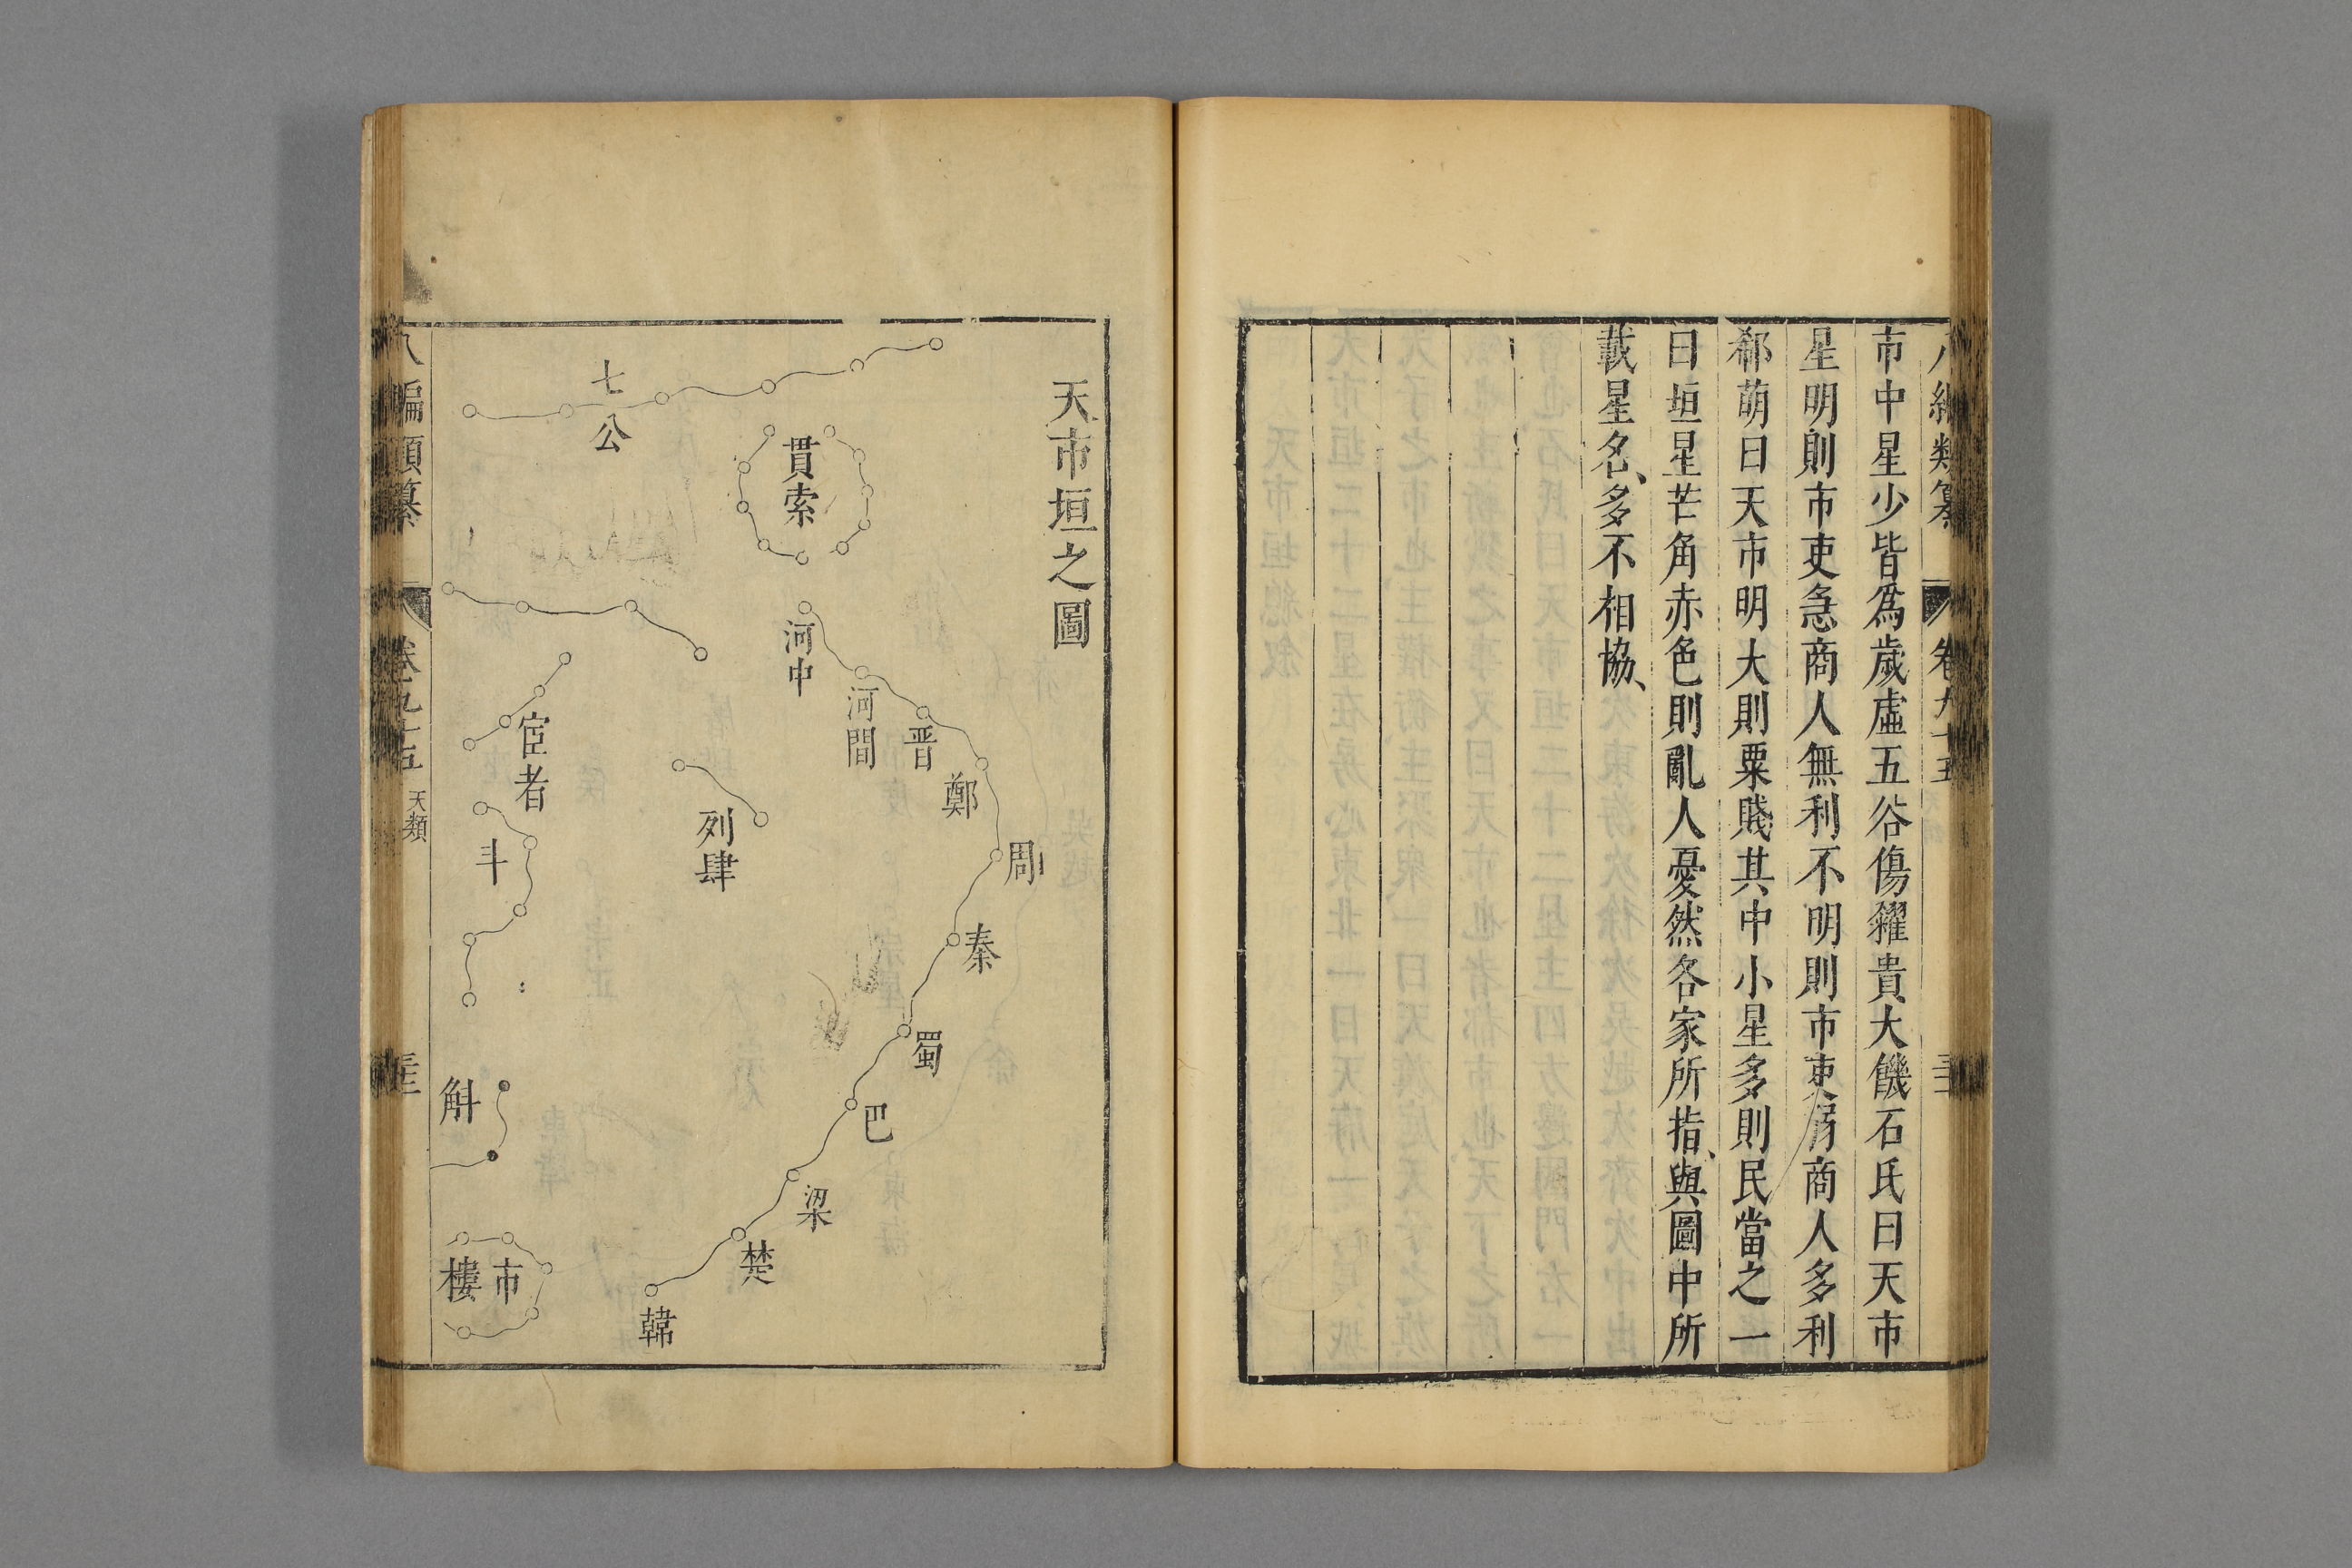 八編類纂 卷九十五
市中星少皆爲歲虛五谷傷糴貴大饑石氏曰天市
星明則市吏急商人無利不明則市吏弱商人多利
郗萌曰天市明大則粟賤其中小星多則民當之一
曰垣星芒角赤色則亂人憂然各家所指、與圖中所
載星名、多不相協、
天市垣之圖
周
秦
鄭
晋
蜀
河間
巴
河中
貫索
梁
楚
列肆
韓
七公
宦者
斗
市樓
斛
八編類纂 卷九十五 天類